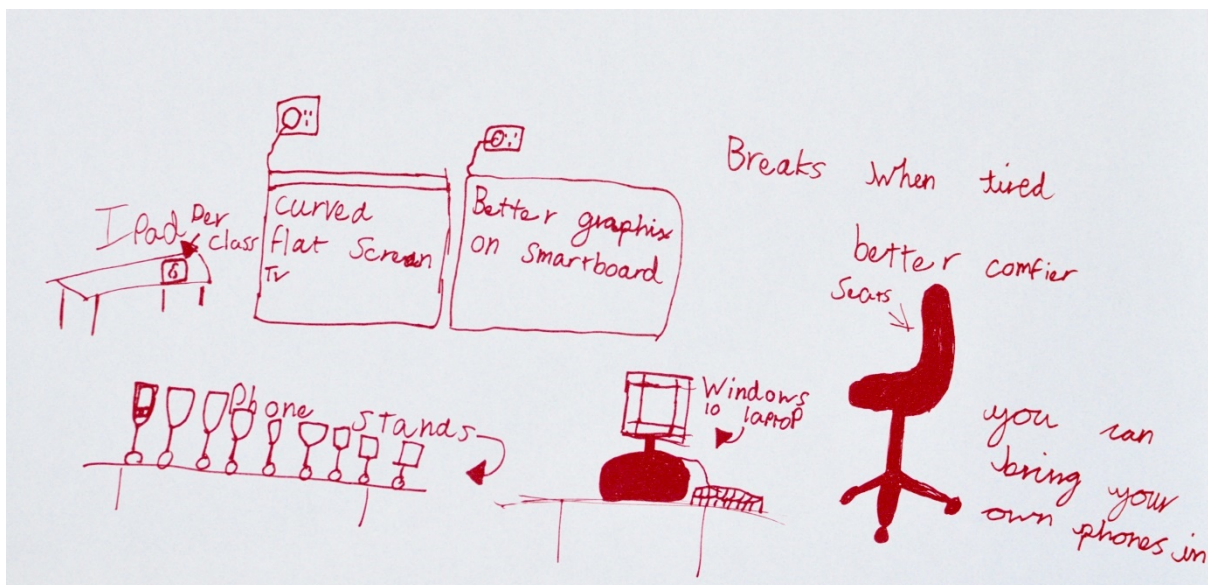 IPad per
class
curved
flat Screen
TV
Better graphix
on smartboard
Breaks when tired
better comfier
Seats
Phone stands
Windows
10 laptop
you can
bring your
own phones in